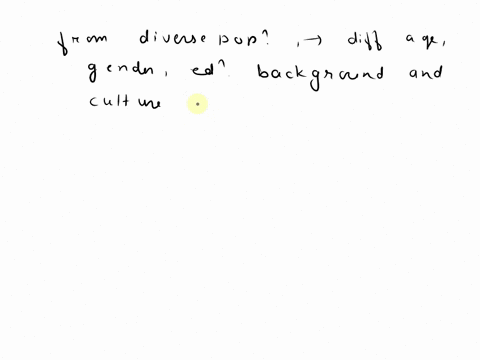 from diverse popn , → diff age,
gender, edn background and
culture